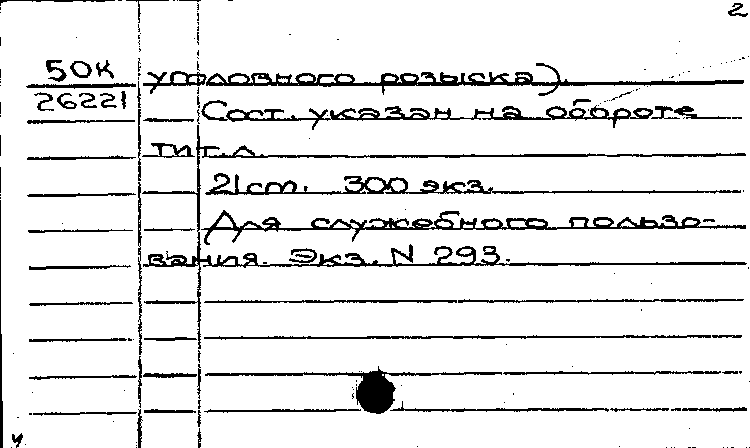 2
50К уголовного розыска).
26221 Сост. указан на обороте
тит.л.
21cm. 300 экз.
Для служебного пользо-
вания. Экз. N 293.
ч